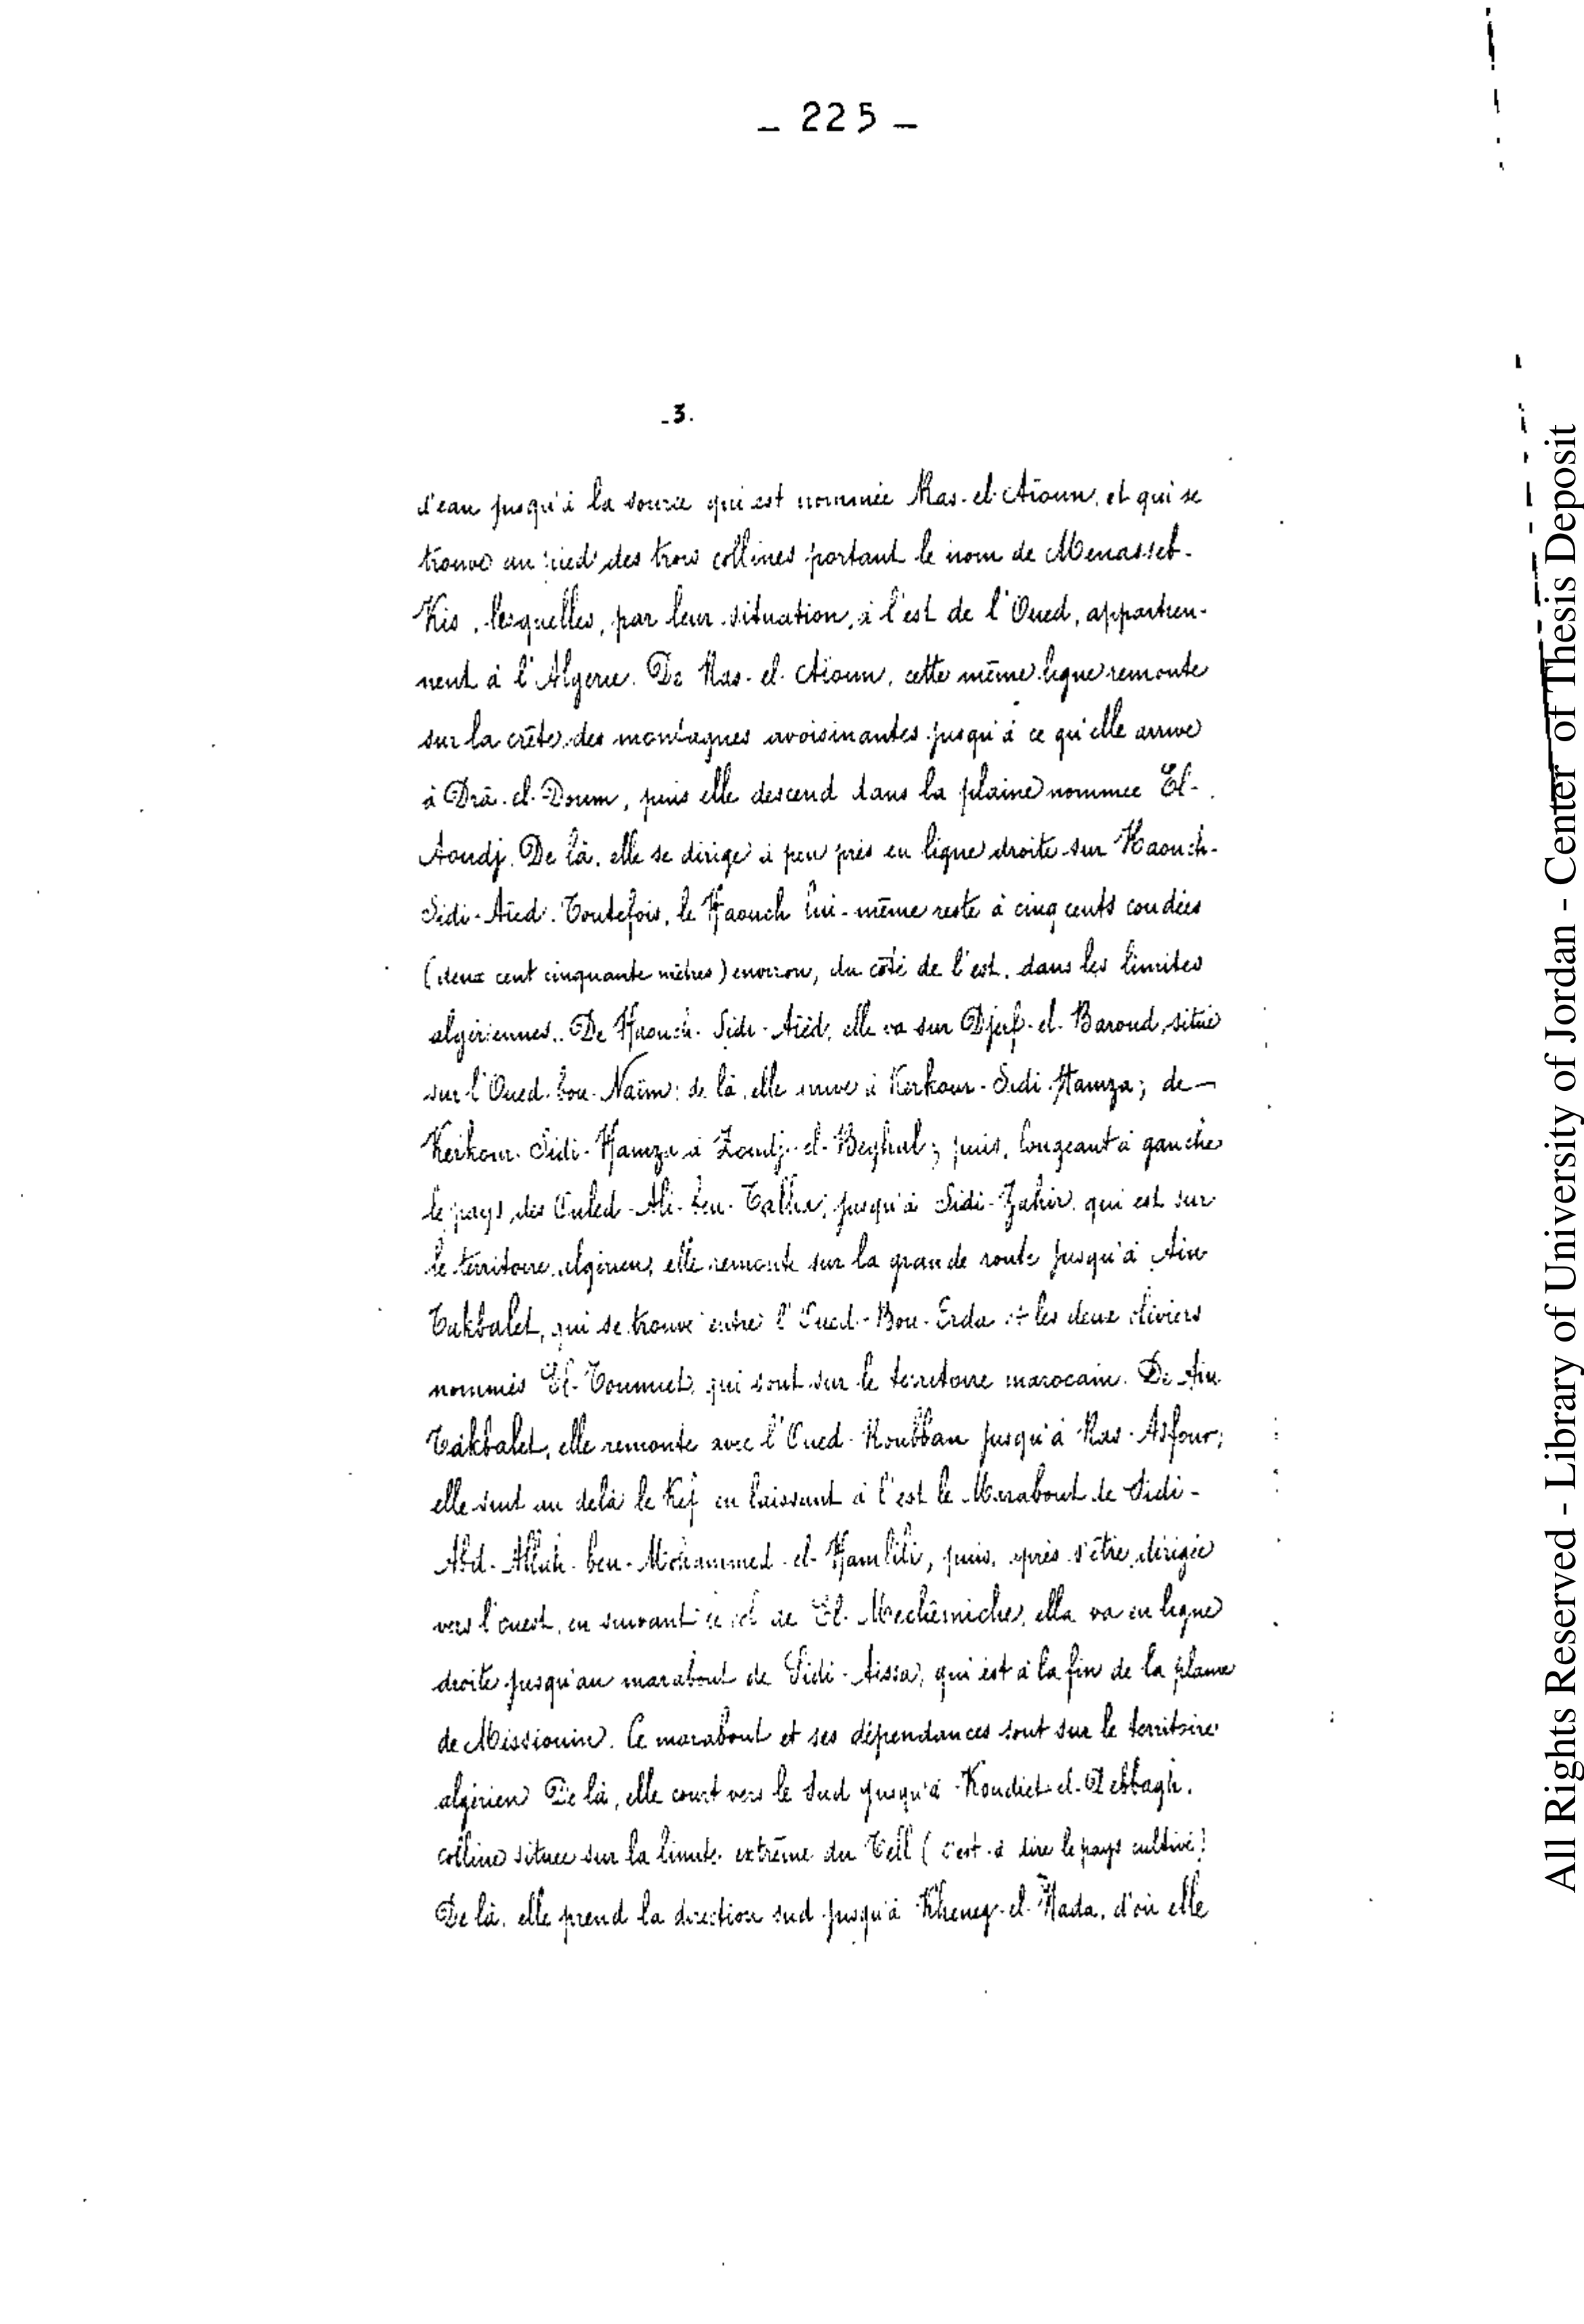 _ 225 _
_3.
d'eau jusqu'à la source qui est nommée Ras-el-Aïoun, et qui se
trouve au pied des trois collines portant le nom de Menasseb-
Kis, lesquelles, par leur situation, à l'est de l'Oued, appartien-
nent à l'Algérie. De Ras-el-Aïoun, cette même ligne remonte
sur la crête des montagnes avoisinantes jusqu'à ce qu'elle arrive
à Drâ-el-Doum, puis elle descend dans la plaine nommée El-
Aoudj. De là, elle se dirige à peu près en ligne droite sur Haouch-
Sidi-Aïed. Toutefois, le Haouch lui-même reste à cinq cents coudées
(deux cent cinquante mètres) environ, du côté de l'est, dans les limites
algériennes. De Haouch-Sidi-Aïëd, elle va sur Djerf-el-Baroud, situé
sur l'Oued-bou-Naïm: de là, elle arrive à Kerkour-Sidi-Hamza; de -
Kerkour-Sidi-Hamza à Zoudj-el-Beghal; puis, longeant à gauche
le pays des Ouled-Ali-ben-Talha, jusqu'à Sidi-Zahir, qui est sur
le territoire algérien, elle remonte sur la grande route jusqu'à Aïn
Takbalet, qui se trouve entre l'Oued-Bou-Erda et les deux oliviers
nommés El-Toumiet, qui sont sur le territoire marocain. De Aïn
Takbalet, elle remonte avec l'Oued-Roubban jusqu'à Ras-Asfour;
elle suit au delà le Kef en laissant à l'est le Marabout de Sidi-
Abd-Allah-ben-Mohammed-el-Hamlili, puis, après s'être dirigée
vers l'ouest, en suivant le col de El-Mechêmiche, elle va en ligne
droite jusqu'au marabout de Sidi-Aissa, qui est à la fin de la plaine
de Missiouin. Ce marabout et ses dépendances sont sur le territoire
algérien De là, elle court vers le sud jusqu'à Koudiet-el-Debbagh,
colline située sur la limite extrême du Tell (c'est-à dire le pays cultivé)
De là, elle prend la direction sud jusqu'à Kheneg-el-Hada, d'où elle
All Rights Reserved - Library of University of Jordan - Center of Thesis Deposit